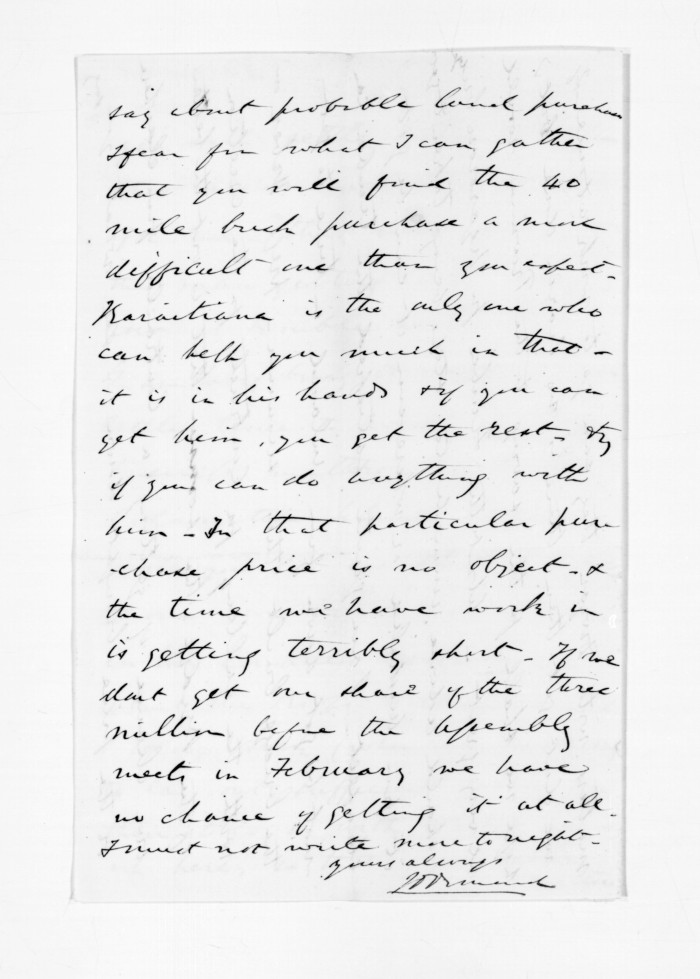 say about probable land purchases
I fear from what I can gather
that you will find the 40
mile bush purchase a most
difficult one than you expect -
Karaitiana is the only one who
can help you much in that -
it is in his hands & if you can
get him, you get the rest - try
if you can do anything with
him - In that particular pur
-chase price is no object - &
the time we have work in
is getting terribly short - If we
dont get our share of the three
million before the Assembly
meets in February we have
no chance of getting it at all.
I must not write more to night -
yours always
JD Ormond